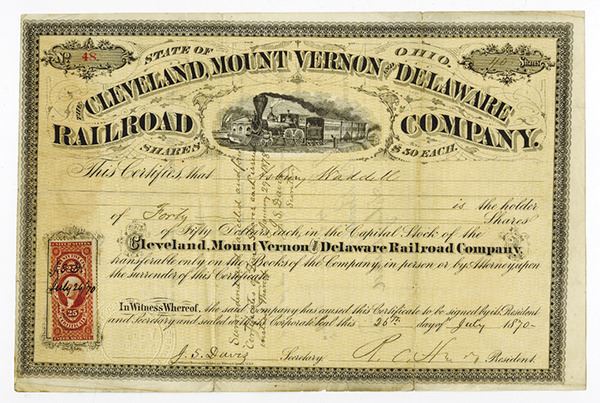 No. 48
STATE OF OHIO.
40 Shares
THE CLEVELAND, MOUNT VERNON AND DELAWARE
RAILROAD COMPANY.
SHARES $50 EACH.
This Certifies, that Waddell
is the holder
of Forty Shares
of Fifty Dollars each, in the Capital Stock of the
Cleveland, Mount Vernon and Delaware Railroad Company,
transferable only on the Books of the Company, in person or by Attorney upon
the surrender of this Certificate.
In Witness Whereof, the said Company has caused this Certificate to be signed by its President
and Secretary and sealed with its Corporate Seal this 26th day of July 1870
J. S. Davis Secretary. President.
July 26 70
25 25
January 29th 1878
J. S. Davis